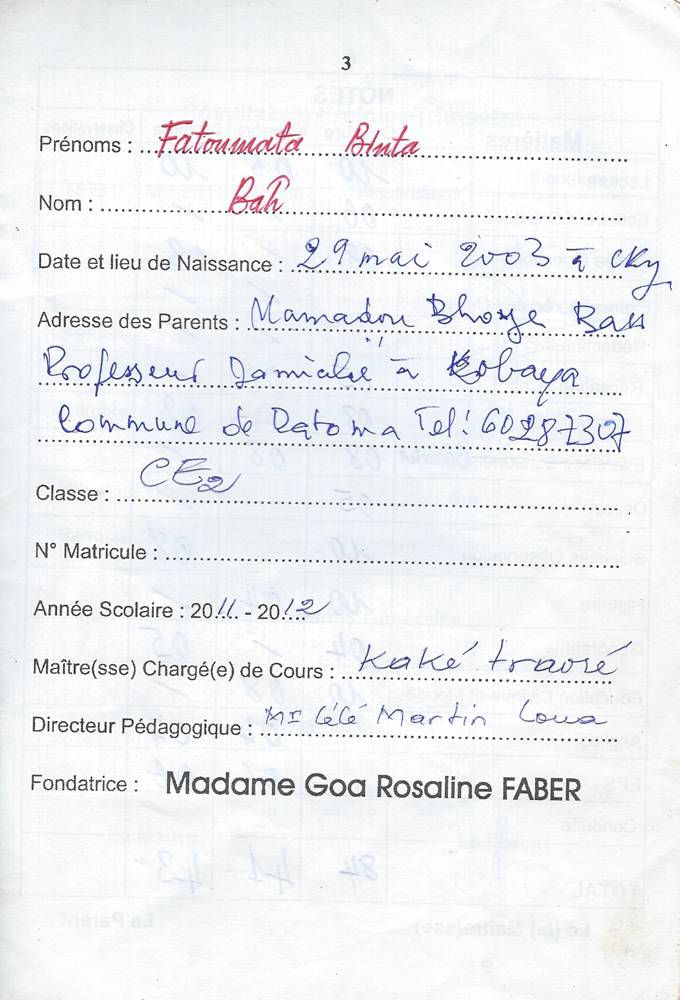 3
Prénoms : Fatoumata Binta
Nom : Bah
Date et lieu de Naissance : 29 mai 2003 à Cky
Adresse des Parents : Mamadou Bhoye Bah
Professeur à Kobaya
Commune de Ratoma Tel: 60287307
Classe : CE2
N° Matricule :
Année Scolaire : 2011 - 2012
Maître(sse) Chargé(e) de Cours : Kaké traoré
Directeur Pédagogique : Mr Cécé Martin Loua
Fondatrice : Madame Goa Rosaline FABER